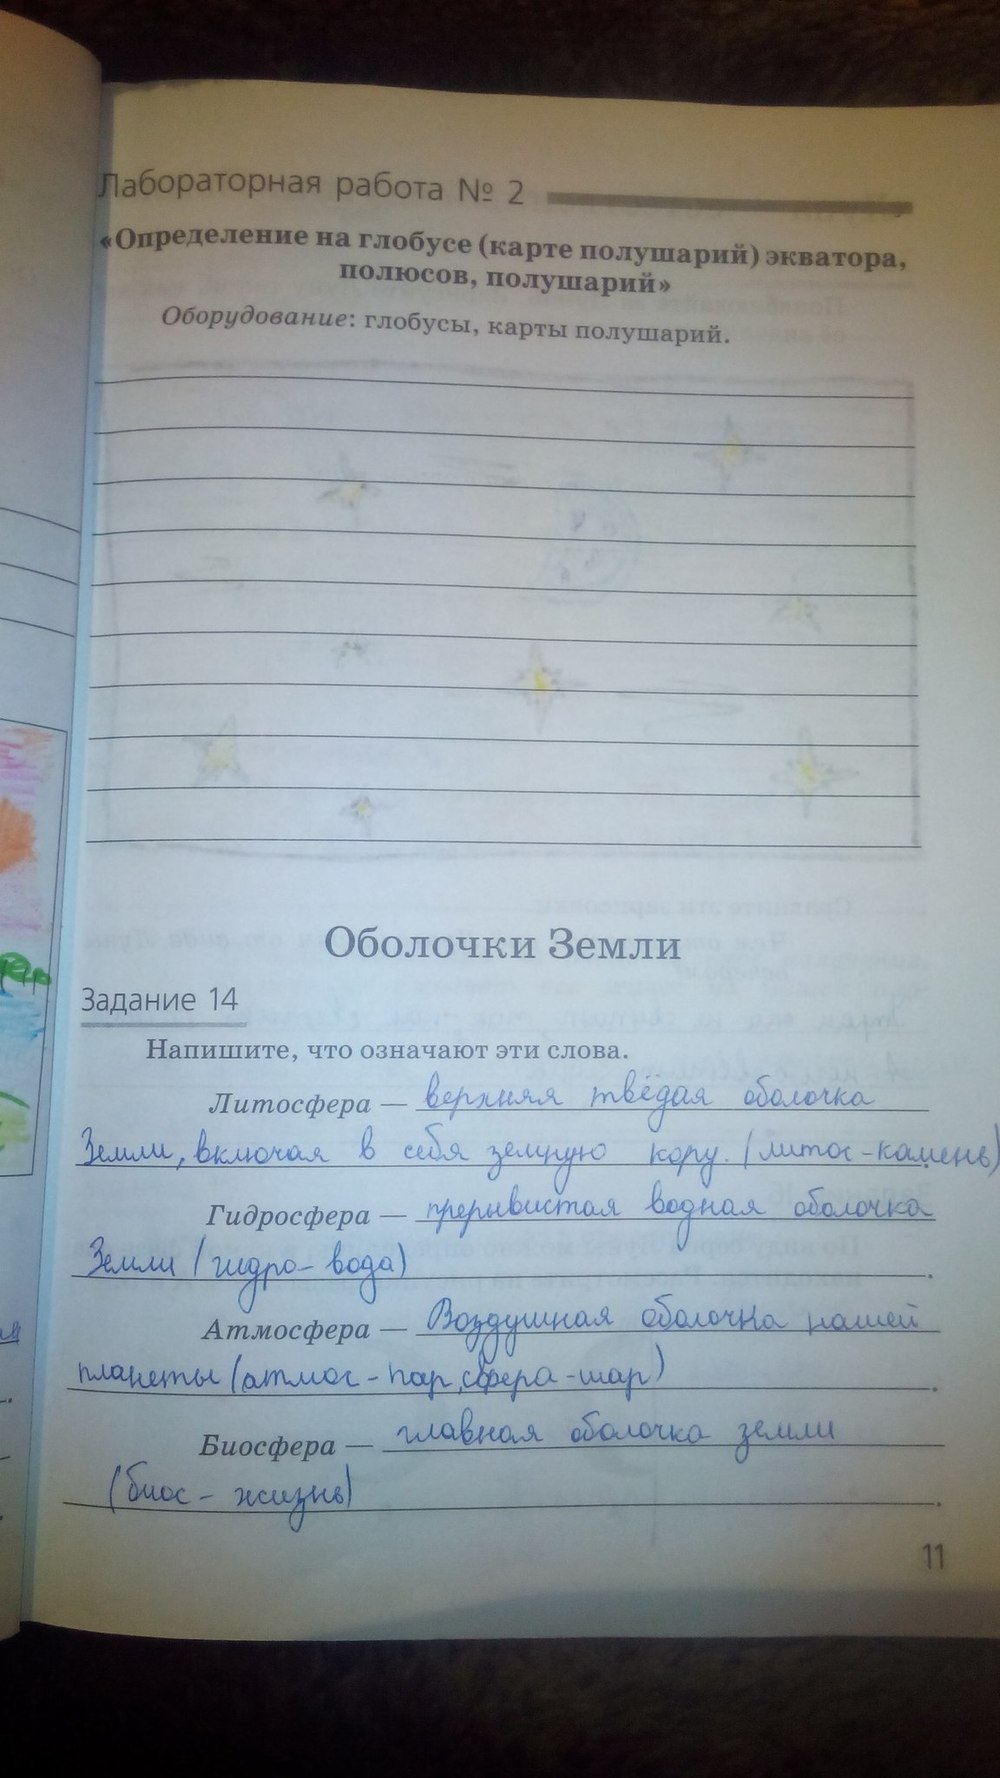 Лабораторная работа № 2
«Определение на глобусе (карте полушарий) экватора,
полюсов, полушарий»
Оборудование: глобусы, карты полушарий.
Оболочки Земли
Задание 14
Напишите, что означают эти слова.
Литосфера — верхняя твёдая оболочка
Земли, включая в себя земную кору. (литос-камень)
Гидросфера — прерывистая водная оболочка
Земли (гидро- вода).
Атмосфера — Воздушная оболочка нашей
планеты (атмос - пар, сфера - шар).
Биосфера — главная оболочка земли
(биос - жизнь).
11